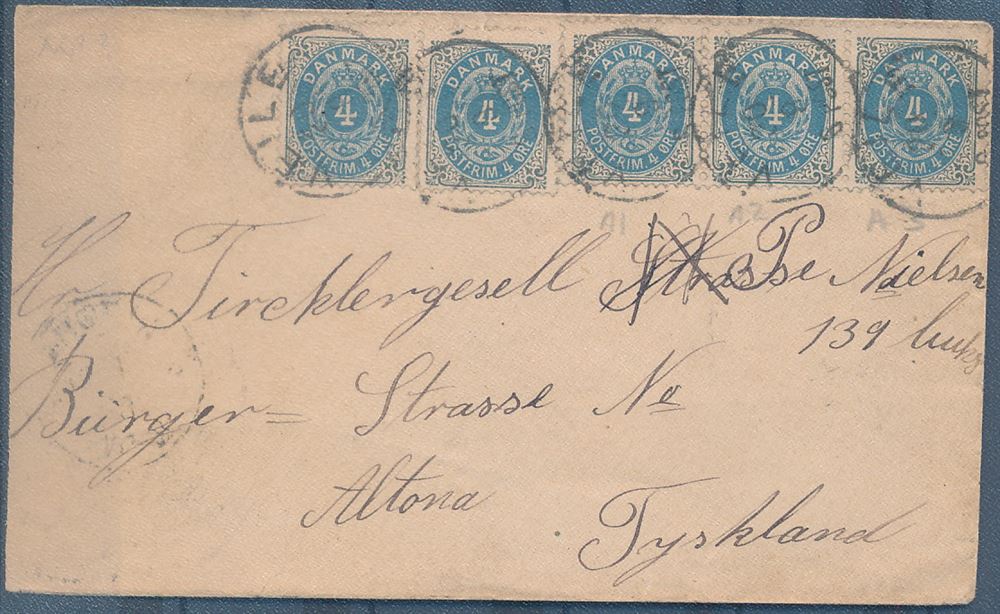 DANMARK 4 POSTFRIM. 4 ØRE
DANMARK 4 POSTFRIM. 4 ØRE
DANMARK 4 POSTFRIM. 4 ØRE
DANMARK 4 POSTFRIM. 4 ØRE
DANMARK 4 POSTFRIM. 4 ØRE
VEILE
A1 A2 A3
Hr Tircklergesell Strasse P Nielsen
139 links
Bürger= Strasse No
Altona
Tyskland